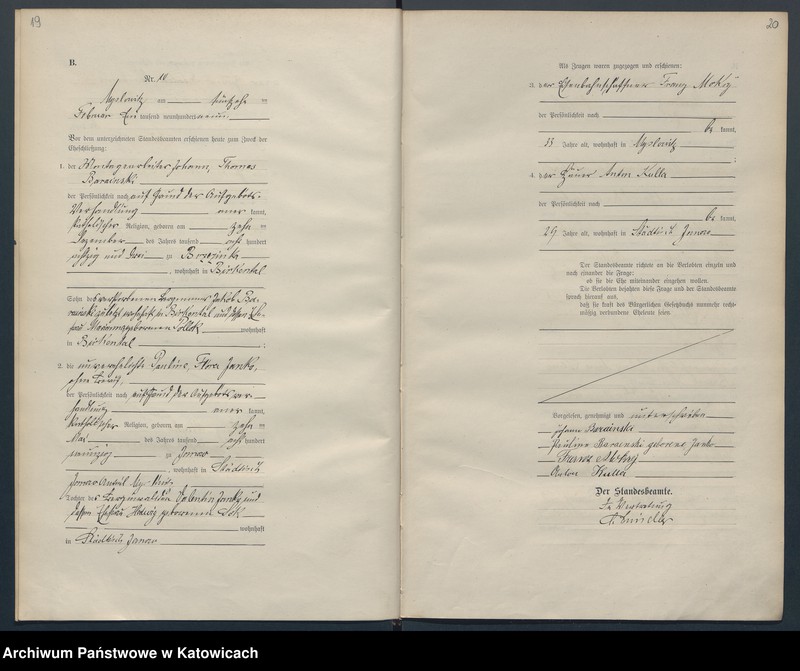 19
B.
Nr. 10
Myslowitz am fünfzehn ten
Februar Ein tausend neunhundert neun
Vor dem unterzeichneten Standesbeamten erschienen heute zum Zweck der
Eheschließung:
1. der Johann, Thomas
Barainski
der Persönlichkeit nach auf Grund der Aufgebots-
Verhandlung aner kannt,
katholischer Religion, geboren am zehn ten
Dezember des Jahres tausend acht hundert
achtzig und zu Brzezinka
, wohnhaft in Birkental
Sohn des verstorbenen Jakob Ba-
rainski zuletzt wohnhaft in Birkental und dessen Ehe-
frau geborenen Pollok wohnhaft
in Birkental ;
2. die unverehelichte Pauline, Flora Janko,
ohne Beruf,
der Persönlichkeit nach auf Grund der Aufgebotsver-
handlung aner kannt,
katholischer Religion, geboren am zehn ten
Mai des Jahres tausend acht hundert
neunzig zu Janow
, wohnhaft in Städtisch
Janow
Tochter des Berginvaliden Valentin Janko und
dessen Ehefrau Hedwig geborenen
wohnhaft
in Städtisch Janow
20
Als Zeugen waren zugezogen und erschienen:
3. der Eisenbahnschaffner Franz
der Persönlichkeit nach
be kannt,
Jahre alt, wohnhaft in Myslowitz
;
4. der Häuer Anton Kulla
der Persönlichkeit nach
be kannt,
29 Jahre alt, wohnhaft in Städtisch Janow
Der Standesbeamte richtete an die Verlobten einzeln und
nach einander die Frage:
ob sie die Ehe miteinander eingehen wollen.
Die Verlobten bejahten diese Frage und der Standesbeamte
sprach hierauf aus,
daß sie kraft des Bürgerlichen Gesetzbuchs nunmehr recht-
mäßig verbundene Eheleute seien.
Vorgelesen, genehmigt und unterschrieben
Johann Barainski
Pauline Barainski geborene Janko
Franz
Anton Kulla
Der Standesbeamte.
In Vertretung
Archiwum Państwowe w Katowicach